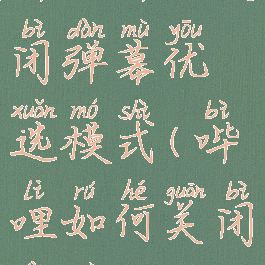 bì dàn mù yōu
闭弹幕优
xuǎn mó shì bì
选模式(哔
lǐ rú hé guān bì
哩如何关闭